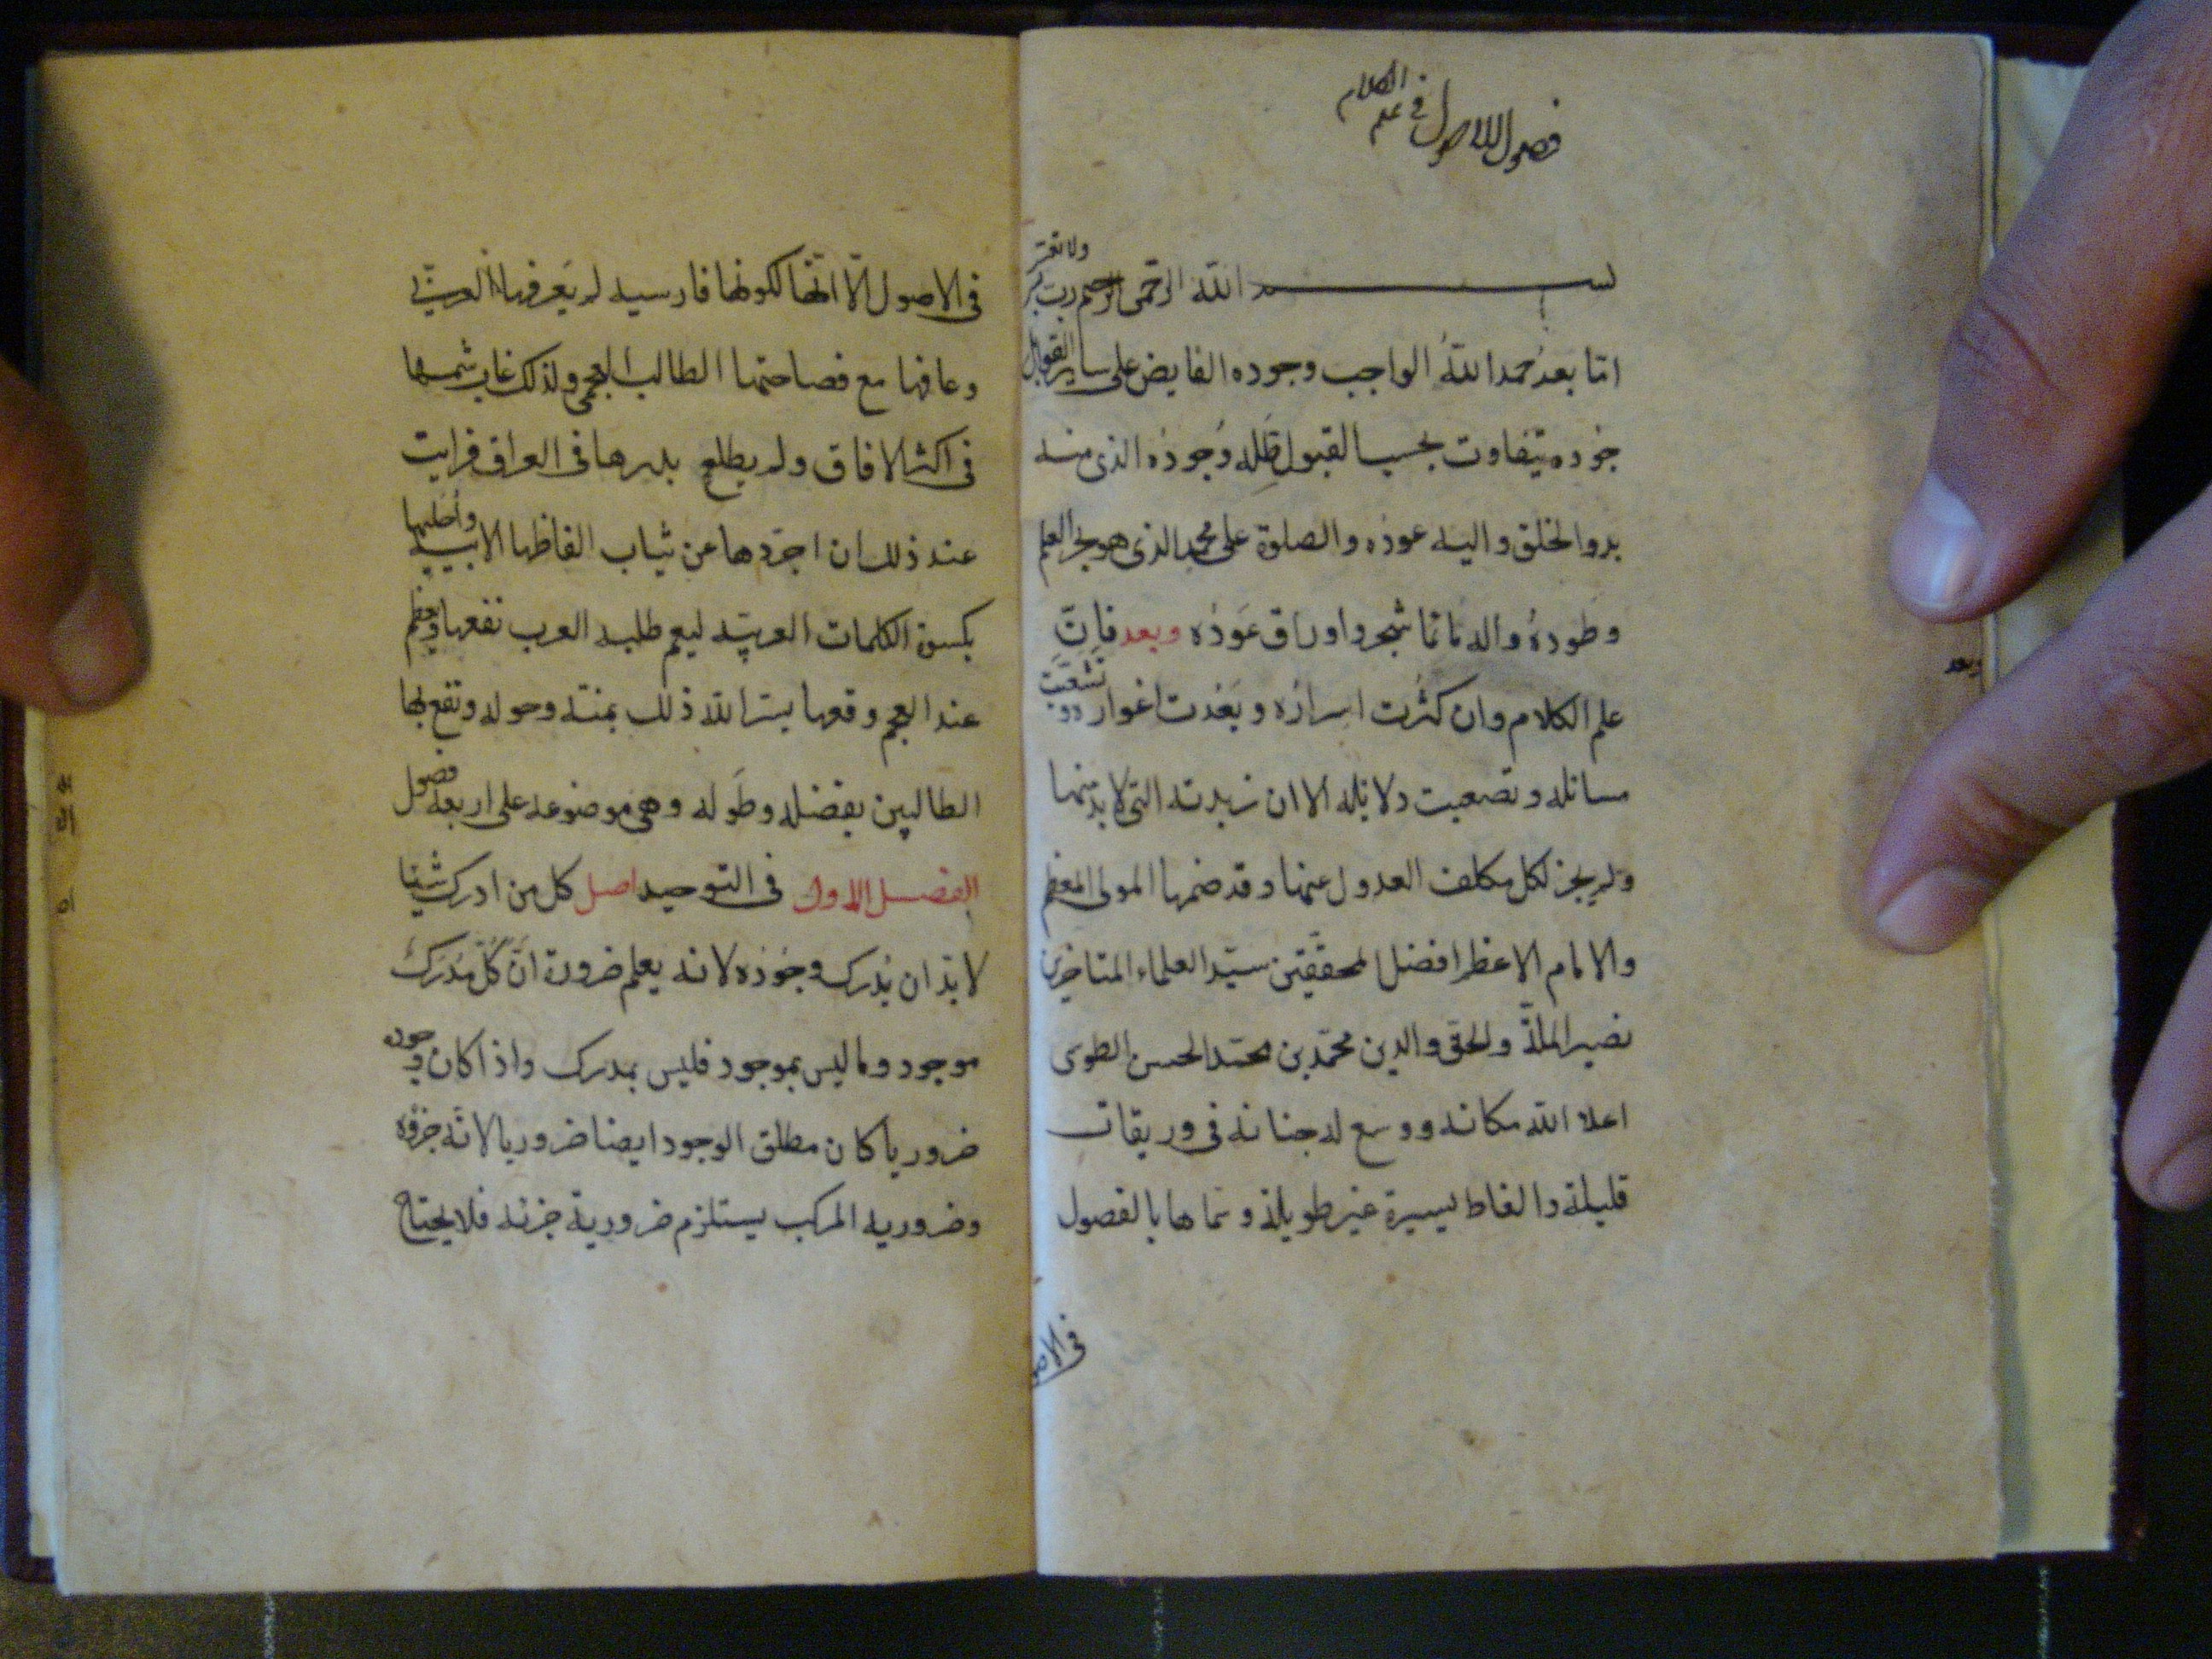 فصول الاصول في علم الكلام
بسم الله الرحمن الرحيم رب يسر ولا تعسر
اما بعد حمد الله الواجب وجوده الفايض على ساير القوابل
جوده يتفاوت بحسب القبول ظله وجوده الذى منه
بدو الخلق واليه عوده والصلوة على محمد الذى هو بحر العلم
وطوده واله ما نما شجر واوراق عوده وبعد فان
علم الكلام وان كثرت اسراره وبعدت اغواره وتشعبت
مسائله وتصعبت دلائله الا ان زبدته التى لا بد منها
ولم يجز لكل مكلف العدول عنها وقد ضمها المولى المعظم
والامام الاعظم افضل المحققين سيد العلماء المتاخرين
نصير الملة والحق والدين محمد بن محمد الحسن الطوسى
اعلا الله مكانه ووسع له جنانه فى وريقات
قليلة والفاظ يسيرة غير طويلة وسماها بالفصول
فى الاصول
وبعد
فى الاصول الا انها لكونها فارسيه لم يعرفها العربى
وعافها مع فصاحتها الطالب العجمى ولذلك غاب شمسها
فى اكثر الافاق ولم يطلع بدرها فى العراق فرايت
عند ذلك ان اجردها عن ثياب الفاظها الابيه واحليها
بكسوة الكلمات العربيه ليعم طلبه العرب نفعها ويعظم
عند العجم وقعها يسر الله ذلك بمنه وحوله ونفع بها
الطالبين بفضله وطوله وهى موضوعه على اربعة فصول
الفصل الاول فى التوحيد اصل كل من ادرك شيئا
لا بد ان يدرك وجوده لانه يعلم ضرورة ان كل مدرك
موجود وما ليس بموجود فليس بمدرك واذا كان وجوده
ضروريا كان مطلق الوجود ايضا ضروريا لانه جزؤه
وضروريه المركب يستلزم ضرورية جزئه فلا يحتاج